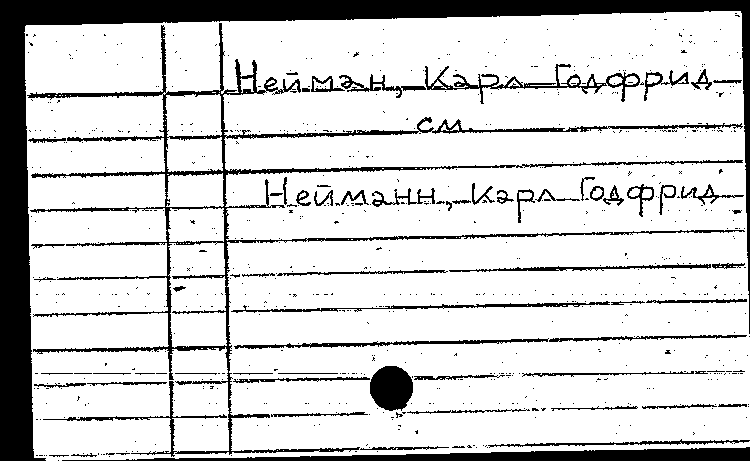 Нейман, Карл Годфрид
см.
Нейманн, Карл Годфрид